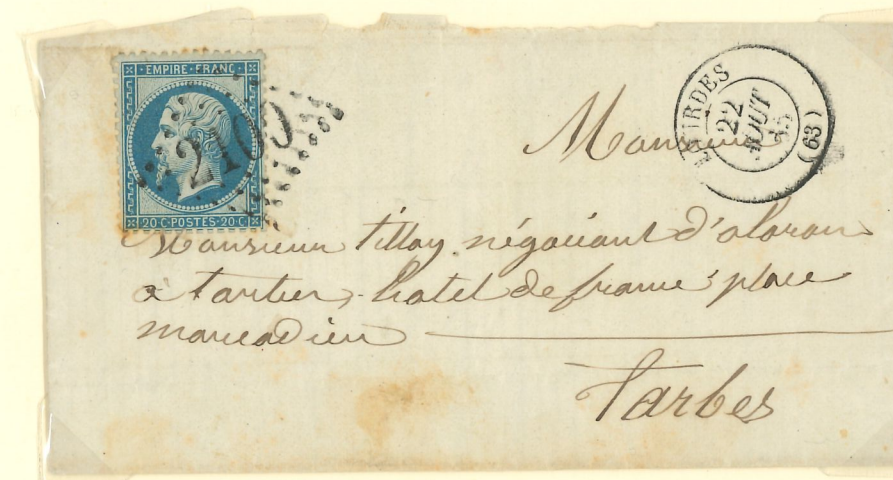 EMPIRE FRANC
2100
20 C POSTES 20 C
LOURDES
22
AOUT
65
(63)
Monsieur
Monsieur tillay négociant d'oloron
a tarbes hotel de france place
marcadieu
Tarbes